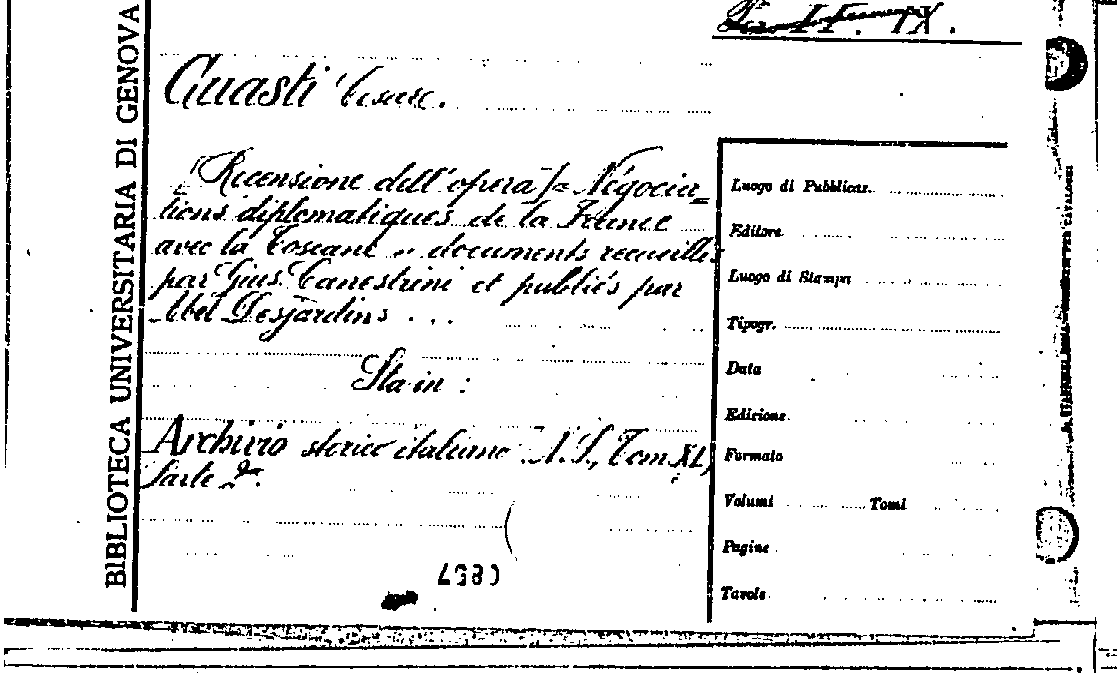 II. IX.
BIBLIOTECA UNIVERSITARIA DI GENOVA
Guasti Cesare.
[Recensione dell'opera] = Négocia=
tions diplomatiques de la France
avec la Toscane .. documents recueillis
par Gius. Canestrini et publiés par
Abel Desjardins . . .
Sta in :
Archivio storico italiano. N. S., Tom. XI,
Parte 2ª.
Luogo di Pubblicaz.
Editore
Luogo di Stampa
Tipogr.
Data
Edizione
Formato
Volumi Tomi
Pagine
Tavole